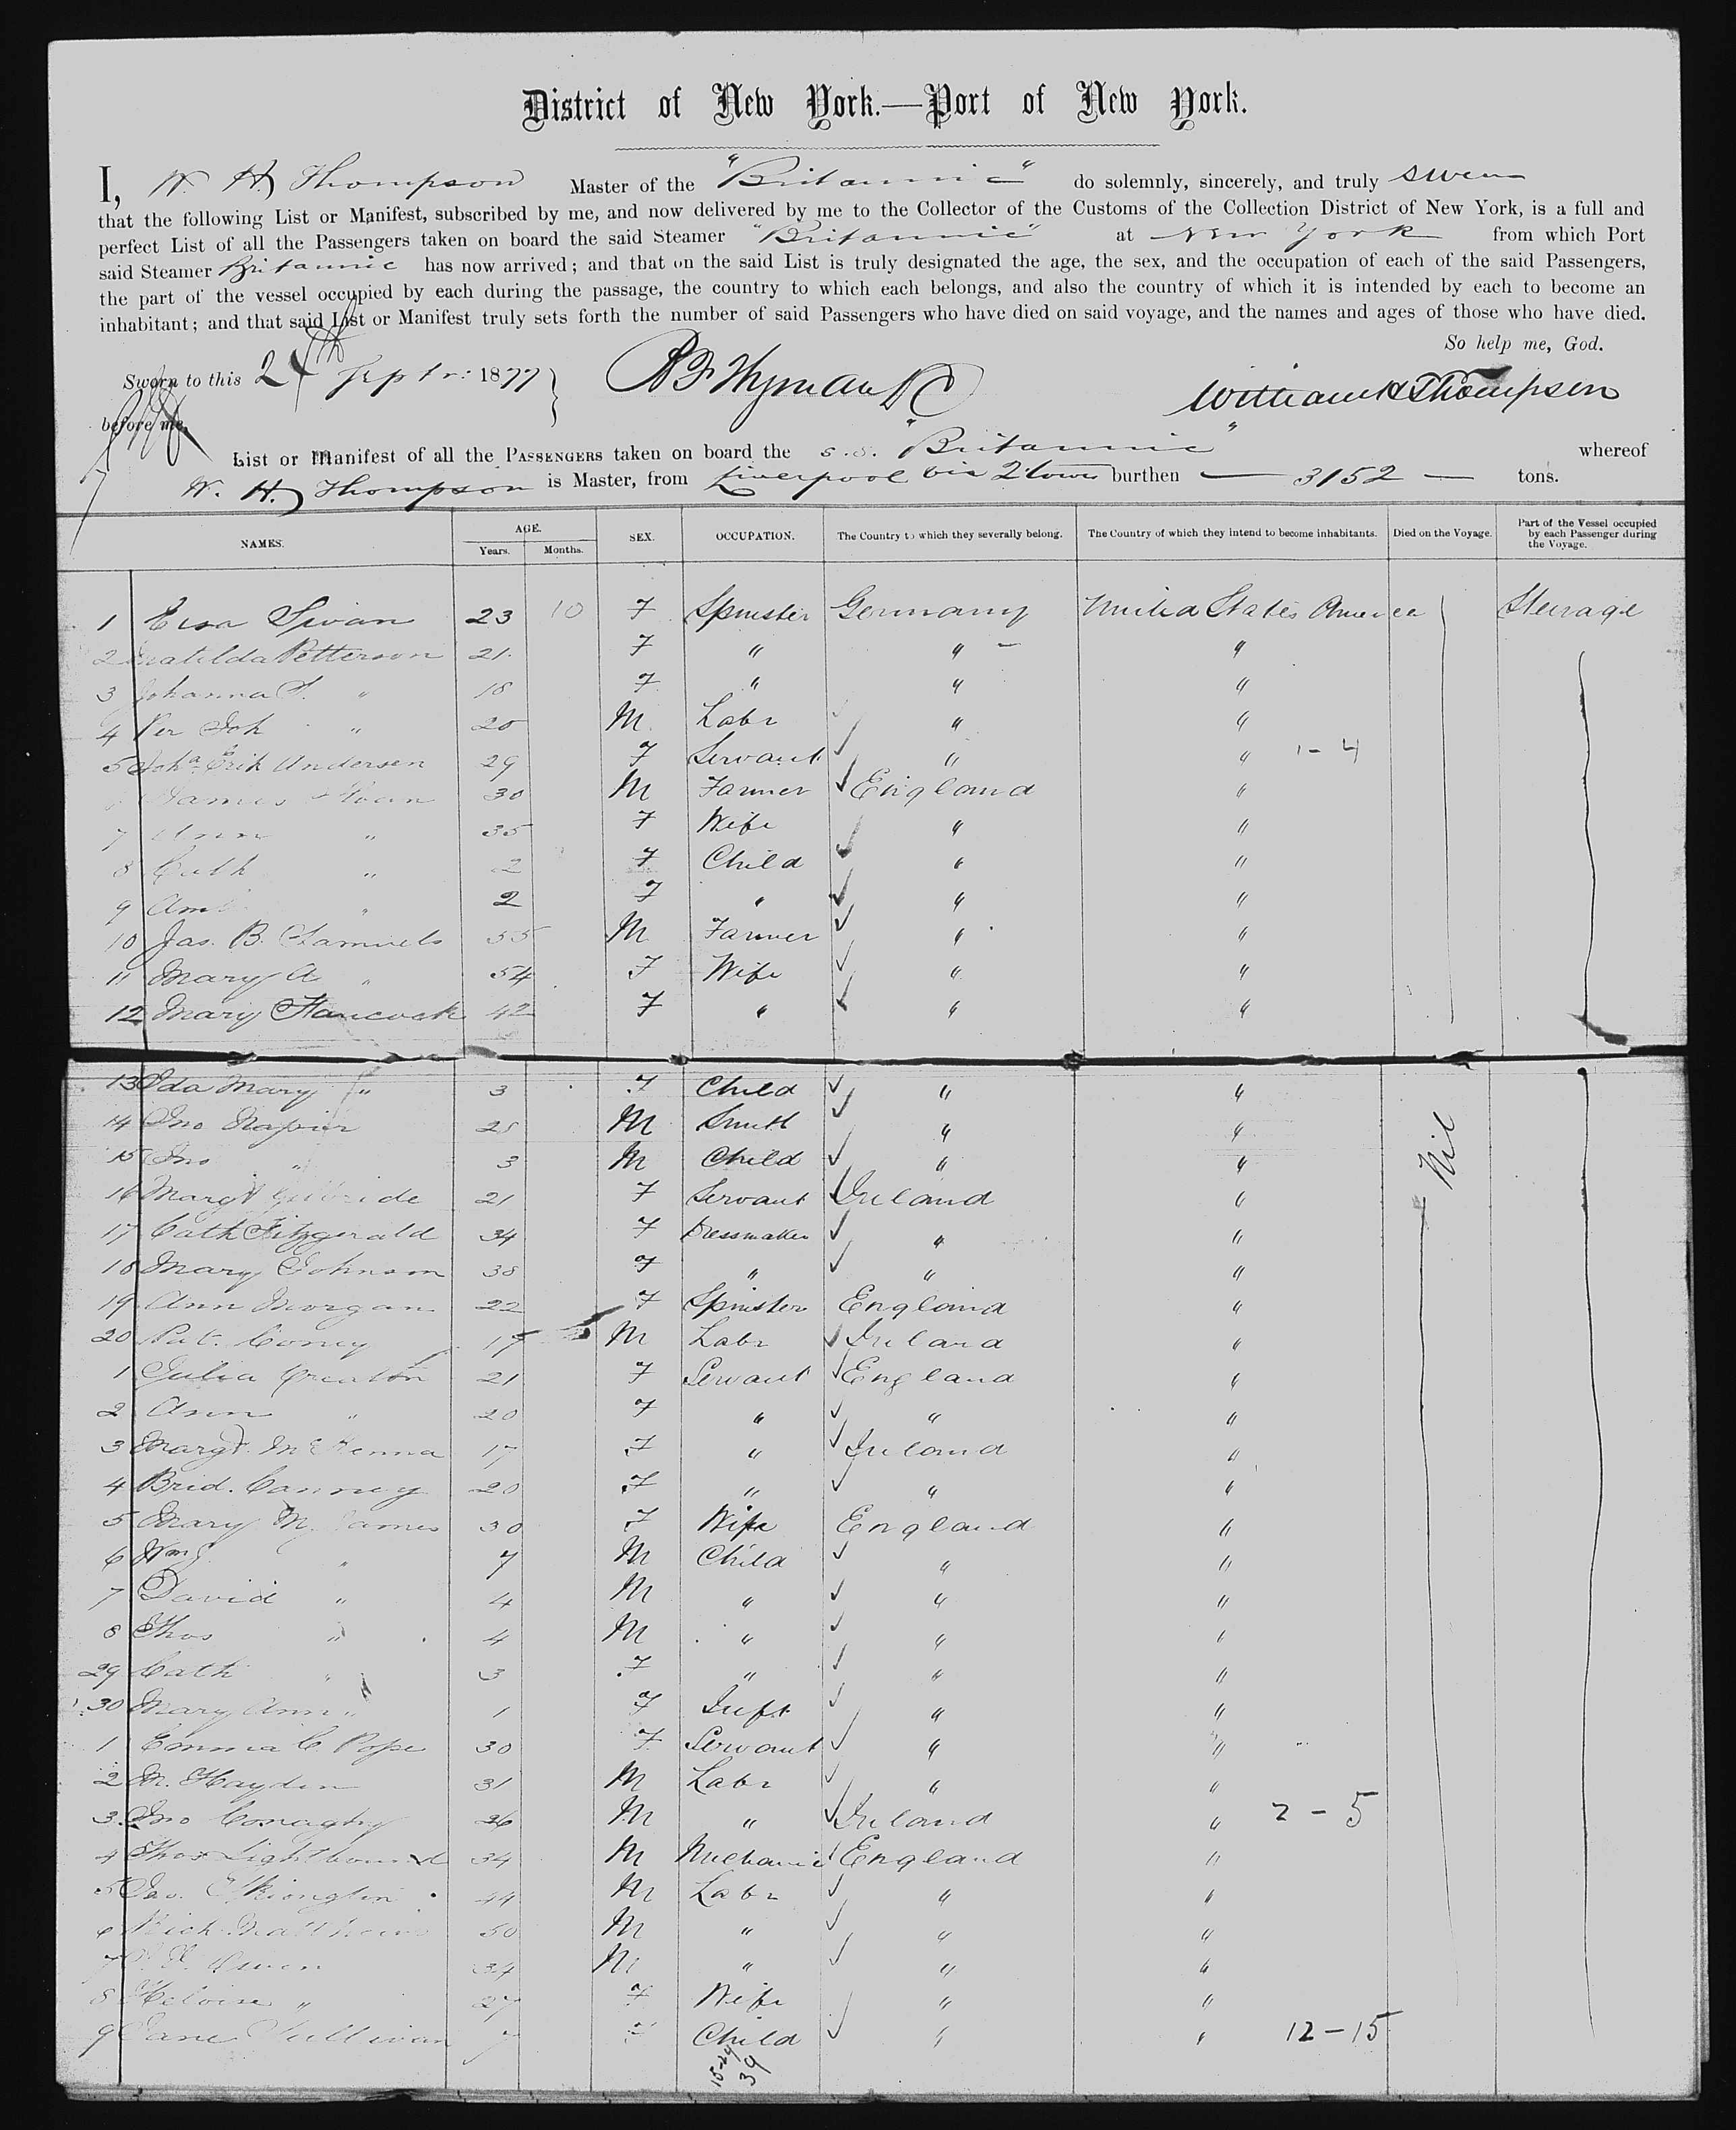 District of New York.—Port of New York.
I, W. H. Thompson Master of the "Britannic" do solemnly, sincerely, and truly swear
that the following List or Manifest, subscribed by me, and now delivered by me to the Collector of the Customs of the Collection District of New York, is a full and
perfect List of all the Passengers taken on board the said Steamer "Britannic" at New York from which Port
said Steamer Britannic has now arrived; and that on the said List is truly designated the age, the sex, and the occupation of each of the said Passengers,
the part of the vessel occupied by each during the passage, the country to which each belongs, and also the country of which it is intended by each to become an
inhabitant; and that said List or Manifest truly sets forth the number of said Passengers who have died on said voyage, and the names and ages of those who have died.
So help me, God.
Sworn to this 24th Septr: 1877
William H Thompson
before me,
List or Manifest of all the PASSENGERS taken on board the s.s. "Britannic" whereof
W. H. Thompson is Master, from Liverpool via Q'town burthen — 3152 — tons.
NAMES. AGE. Years. Months. SEX. OCCUPATION. The Country to which they severally belong. The Country of which they intend to become inhabitants. Died on the Voyage. Part of the Vessel occupied by each Passenger during the Voyage.
1 Swan 23 10 F Spinster Germany United States America Steerage
2 Matilda Petterson 21 F " " "
3 Johanna S. " 18 F " " "
4 Per Joh " 20 M Labr " "
5 Joha Erik Andersen 29 F Servant " " 1-4
James Sloan 30 M Farmer England "
7 Ann " 35 F Wife " "
8 Cath " 2 F Child " "
9 " 2 F " " "
10 Jas. B. Samuels 55 M Farmer " "
11 Mary A " 54 F Wife " "
12 Mary Hancock 42 F " " "
13 Ida Mary " 3 F Child " "
14 Jno Napier 28 M Smith " "
15 Jno " 3 M Child " " Nil
16 Margt Gilbride 21 F Servant Ireland "
17 Cath Fitzgerald 34 F Dressmaker " "
18 Mary Johnson 38 F " " "
19 Ann Morgan 22 F Spinster England "
20 Pat. Coney 17 M Labr Ireland "
1 Julia 21 F Servant England "
2 Ann " 20 F " " "
3 Margt. McKenna 17 F " Ireland "
4 Brid. Canney 20 F " " "
5 Mary M. James 30 F Wife England "
6 Wm J. " 7 M Child " "
7 David " 4 M " " "
8 Thos " 4 M " " "
29 Cath " 3 F " " "
30 Mary Ann " 1 F Inft " "
1 Emma C Pope 30 F Servant " "
2 M. Hayden 31 M Labr " "
3 Jno Conaghy 26 M " Ireland " 2-5
4 Thos Lightbound 34 M Mechanic England "
5 Jas. Elkington 44 M Labr " "
6 Rich Matthews 50 M " " "
7 Owen 34 M " " "
8 Heloise " 27 F Wife " "
9 Jane Sullivan 7 F Child " " 12-15
15-24
39